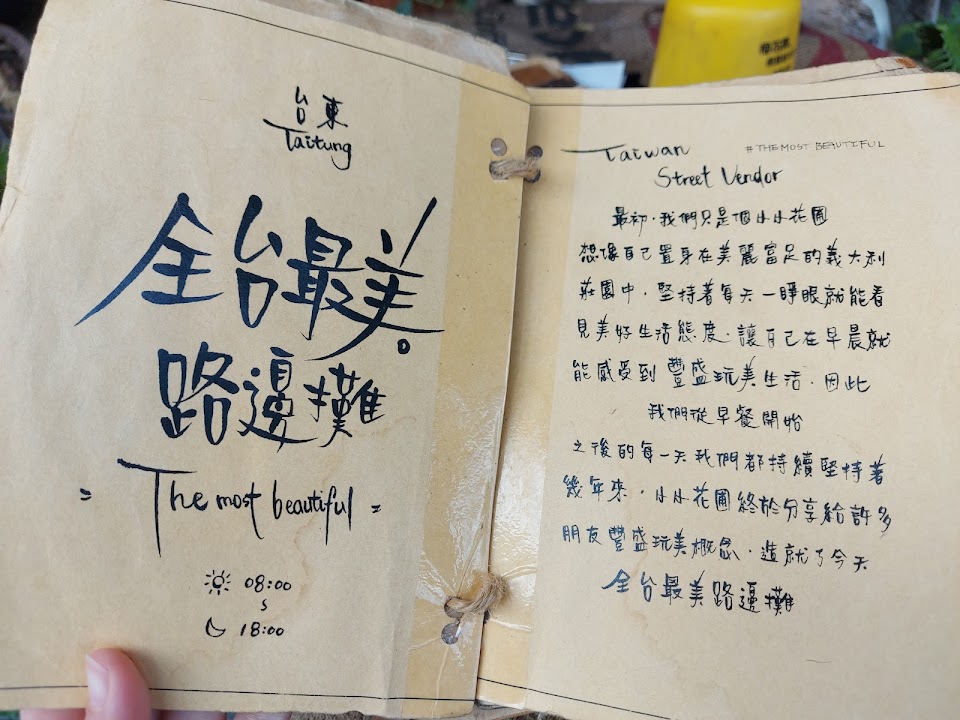 台東
Taitung
全台最美。
路邊攤
= The most beautiful =
08:00
s
18:00
Taiwan
#THE MOST BEAUTIFUL
Street Vendor
最初，我們只是個小小花圃
想像自己置身在美麗富足的義大利
莊園中，堅持著每天一睜眼就能看
見美好生活態度，讓自己在早晨就
能感受到豐盛玩美生活，因此
我們從早餐開始
之後的每一天我們都持續堅持著
幾年來，小小花圃終於分享給許多
朋友豐盛玩美概念，造就了今天
全台最美路邊攤